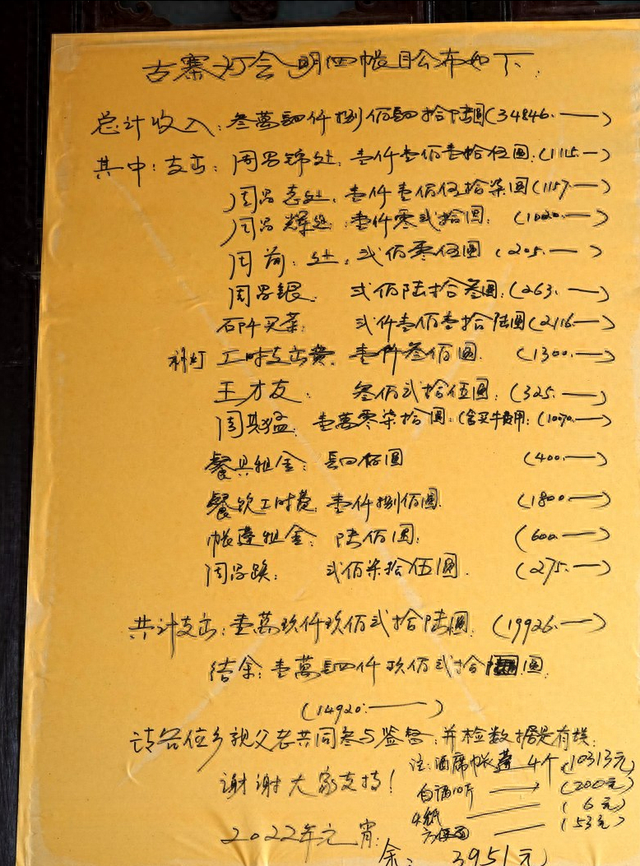 古寨灯会明细帐目公布如下:
总计收入:叁萬肆仟捌佰肆拾陆圆(34846.—)
其中:支出:周吕锦处:壹仟壹佰壹拾伍圆.(1115.—)
周吕志处:壹仟壹佰伍拾柒圆(1157.—)
周吕辉处:壹仟零贰拾圆:(1020.—)
周前:处:贰佰零伍圆(205.—)
周吕银: 贰佰陆拾叁圆:(263.—)
买菜: 贰仟壹佰壹拾陆圆(2116.—)
灯工时支出费:壹仟叁佰圆.(1300.—)
王才友: 叁佰贰拾伍圆:(325.—)
周猛:壹萬零柒拾圆:(含买牛费用:(10070.—)
餐具租金:肆佰圆(400.—)
餐饮工时费:壹仟捌佰圆.(1800.—)
帐篷租金:陆佰圆:(600.—)
周吕: 贰佰柒拾伍圆.(275.—)
共计支出:壹萬玖仟玖佰贰拾陆圆.(19926.—)
结余:壹萬肆仟玖佰贰拾圆.
(14920.—)
请各位乡亲父老共同参与监督,并检数据是有误.
谢谢大家支持!
注:酒席帐篷4个(10313元)
白酒10斤→(200元)
纸—(6元)
—(53元)
2022年元宵
余:3951元